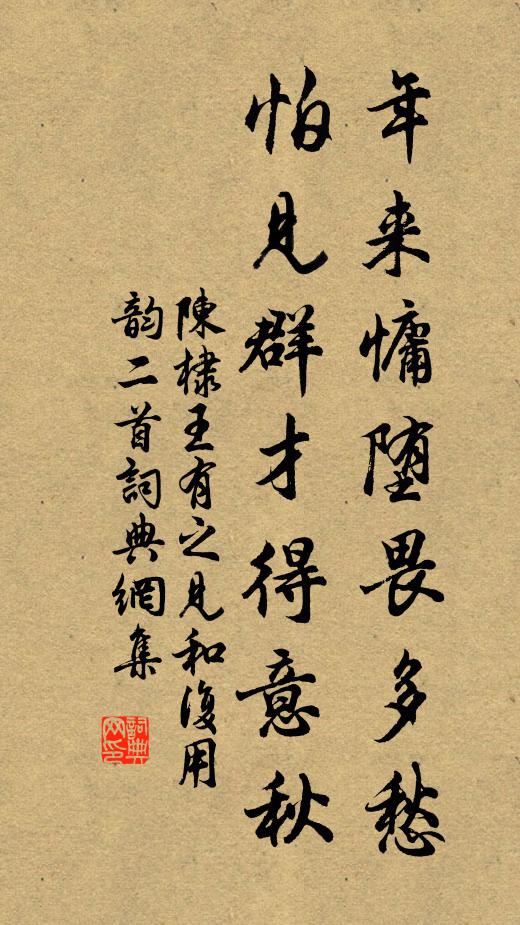 年来慵堕畏多愁
怕見群才得意秋
陳棣王有之見和復用
韵二首詞典網集
詞典
网印